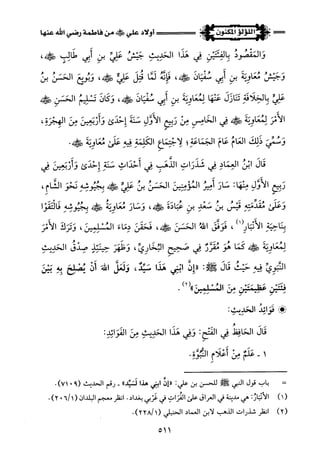 اللؤلؤ المكنون
أولاد علي ﷺ من فاطمة رضي الله عنها
وَالمَقْصُودُ بِالفِئَتَيْنِ فِي هَذَا الحَدِيثِ جَيْشُ عَلِيِّ بنِ أَبِي طَالِبٍ ﷺ،
وَجَيْشُ مُعَاوِيَةَ بنِ أَبِي سُفْيَانَ ﷺ، فَإِنَّهُ لَمَّا قُتِلَ عَلِيٌّ ﷺ، وَبُويِعَ الحَسَنُ بنُ
عَلِيٍّ بِالخِلَافَةِ تَنَازَلَ عَنْهَا لِمُعَاوِيَةَ بنِ أَبِي سُفْيَانَ ﷺ، وَكَانَ تَسْلِيمُ الحَسَنِ ﷺ
الأَمْرَ لِمُعَاوِيَةَ ﷺ فِي الخَامِسِ مِنْ رَبِيعٍ الأَوَّلِ سَنَةَ إِحْدَى وَأَرْبَعِينَ مِنَ الهِجْرَةِ،
وَسُمِّيَ ذَلِكَ العَامُ عَامَ الجَمَاعَةِ، لِاجْتِمَاعِ الكَلِمَةِ فِيهِ عَلَى مُعَاوِيَةَ ﷺ.
قَالَ ابْنُ العِمَادِ فِي شَذَرَاتِ الذَّهَبِ فِي أَحْدَاثِ سَنَةِ إِحْدَى وَأَرْبَعِينَ فِي
رَبِيعٍ الأَوَّلِ مِنْهَا: سَارَ أَمِيرُ المُؤْمِنِينَ الحَسَنُ بنُ عَلِيٍّ ﷺ بِجُيُوشِهِ نَحْوَ الشَّامِ،
وَعَلَى مُقَدِّمَتِهِ قَيْسُ بنُ سَعْدِ بنِ عُبَادَةَ ﷺ، وَسَارَ مُعَاوِيَةُ ﷺ بِجُيُوشِهِ فَالْتَقَوْا
بِنَاحِيَةِ الأَنْبَارِ(١)، فَوَفَّقَ اللهُ الحَسَنَ ﷺ، فَحَقَنَ دِمَاءَ المُسْلِمِينَ، وَتَرَكَ الأَمْرَ
لِمُعَاوِيَةَ ﷺ كَمَا هُوَ مُقَرَّرٌ فِي صَحِيحِ البُخَارِيِّ، وَظَهَرَ حِينَئِذٍ صِدْقُ الحَدِيثِ
النَّبَوِيِّ فِيهِ حَيْثُ قَالَ ﷺ: «إِنَّ ابْنِي هَذَا سَيِّدٌ، وَلَعَلَّ اللهَ أَنْ يُصْلِحَ بِهِ بَيْنَ
فِئَتَيْنِ عَظِيمَتَيْنِ مِنَ المُسْلِمِينَ»(٢).
فَوَائِدُ الحَدِيثِ:
قَالَ الحَافِظُ فِي الفَتْحِ: وَفِي هَذَا الحَدِيثِ مِنَ الفَوَائِدِ:
١ - عَلَمٌ مِنْ أَعْلَامِ النُّبُوَّةِ.
= باب قول النبي ﷺ للحسن بن علي: «إنَّ ابني هذا لَسَيِّد» - رقم الحديث (٧١٠٩).
(١) الأنْبَارُ: هي مدينة في العراق على الفُرَاتِ في غَرْبي بغداد. انظر معجم البلدان (٢٠٦/١).
(٢) انظر شذرات الذهب لابن العماد الحنبلي (٢٢٨/١).
٥١١